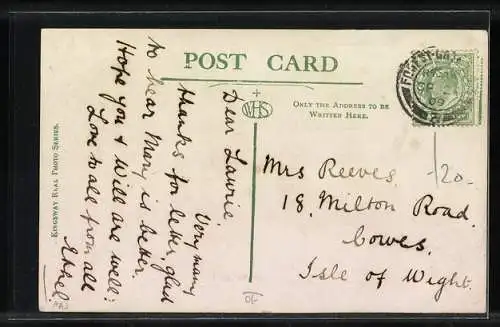 POST CARD
KINGSWAY REAL PHOTO SERIES.
WHS
ONLY THE ADDRESS TO BE
WRITTEN HERE.
Dear Laurie,
Very many
thanks for letter, glad
to hear Mary is better.
Hope you & Will are well:
Love to all from all
Ethel
Mrs Reeves,
18, Milton Road,
Cowes,
Isle of Wight.
FOREST GATE
09
-20-